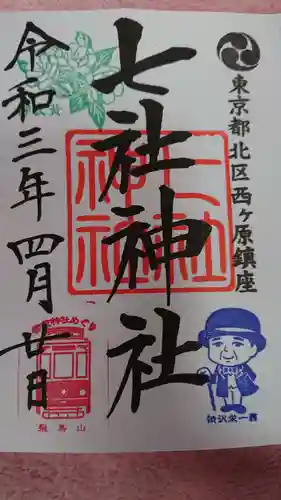 東京都北区西ヶ原鎮座
七社神社
七社
神社
令和三年四月廿日
飛鳥山
渋沢栄一翁